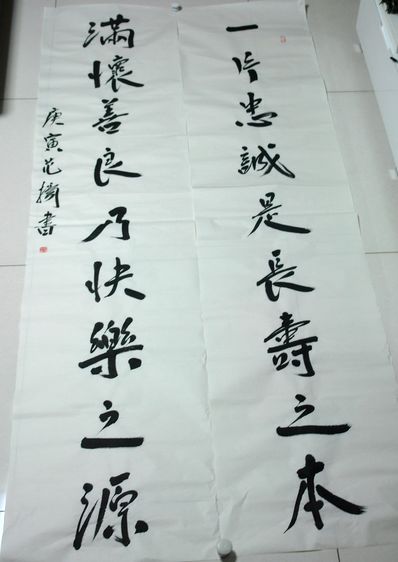 一片忠誠是長壽之本
滿懷善良乃快樂之源
庚寅范衛書